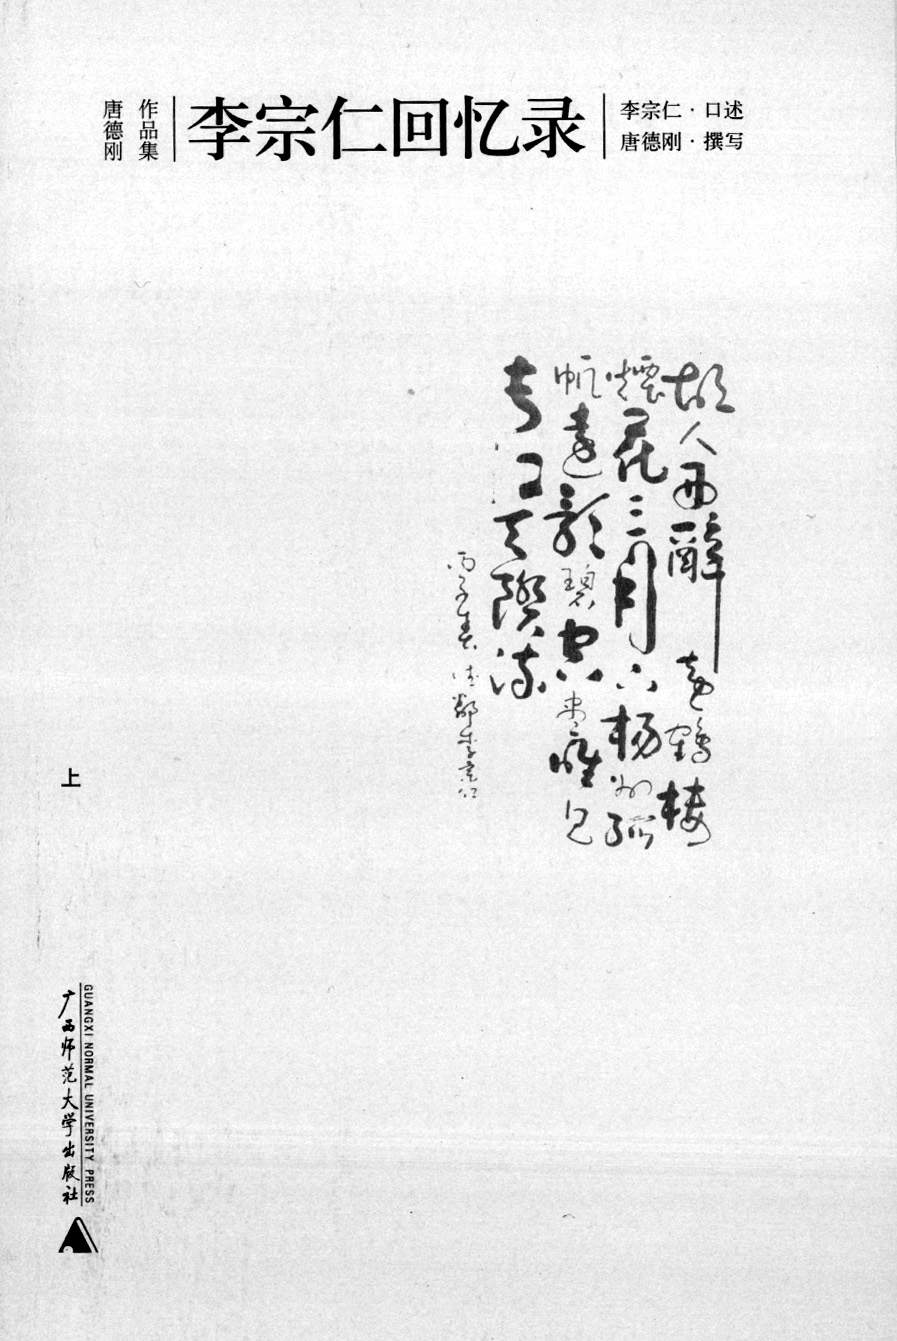 唐德刚
作品集
李宗仁回忆录
李宗仁·口述
唐德刚·撰写
故人西辭黃鶴樓
煙花三月下楊州孤
帆遠影碧空尽惟見
長江天際流
丙子春德鄰李宗仁
上
广西师范大学出版社
GUANGXI NORMAL UNIVERSITY PRESS